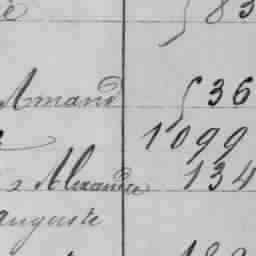 83
Armand 36
1099
Alexandre 134
auguste